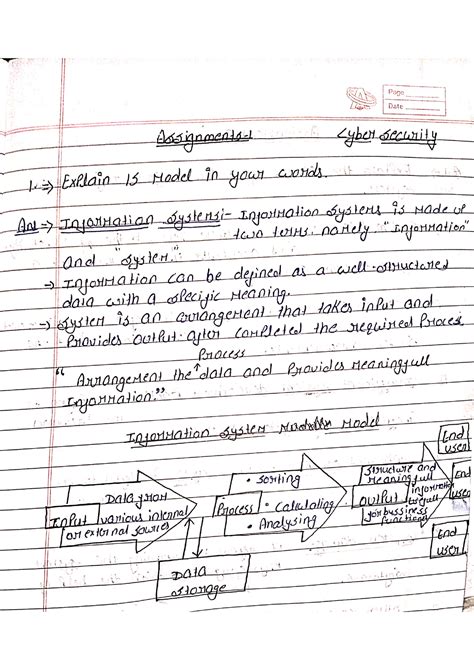 Page
Date
Assignments-1 Cyber Security
1. → Explain IS Model in your words.
Ans → Information Systems:- Information Systems is made up
two terms. namely "Information"
And "System."
→ Information can be defined as a well-structured
data with a specific meaning.
→ System is an arrangement that takes input and
Provides output after completed the required Process
Process
" Arrangement the ↑ data and Provides Meaningfull
Information."
Information System Model
Input
Data from
various internal
or external source
Process
• Sorting
• Calculating
• Analysing
Data
Storage
Output
Structure and
Meaningfull
information
usefull
for bussiness
functions
End
user
End
user
End
user